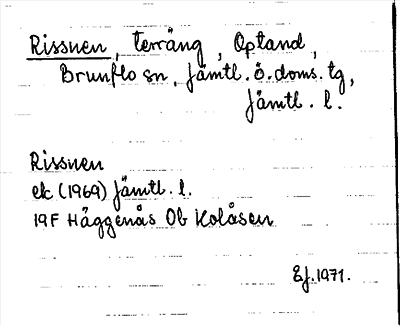 Rissnen, terräng, Optand,
Brunflo sn, Jämtl. ö. doms. tg,
Jämtl. l.
Rissnen
ek (1969) Jämtl. l.
19F Häggenås Ob Kolåsen
Ej. 1971.